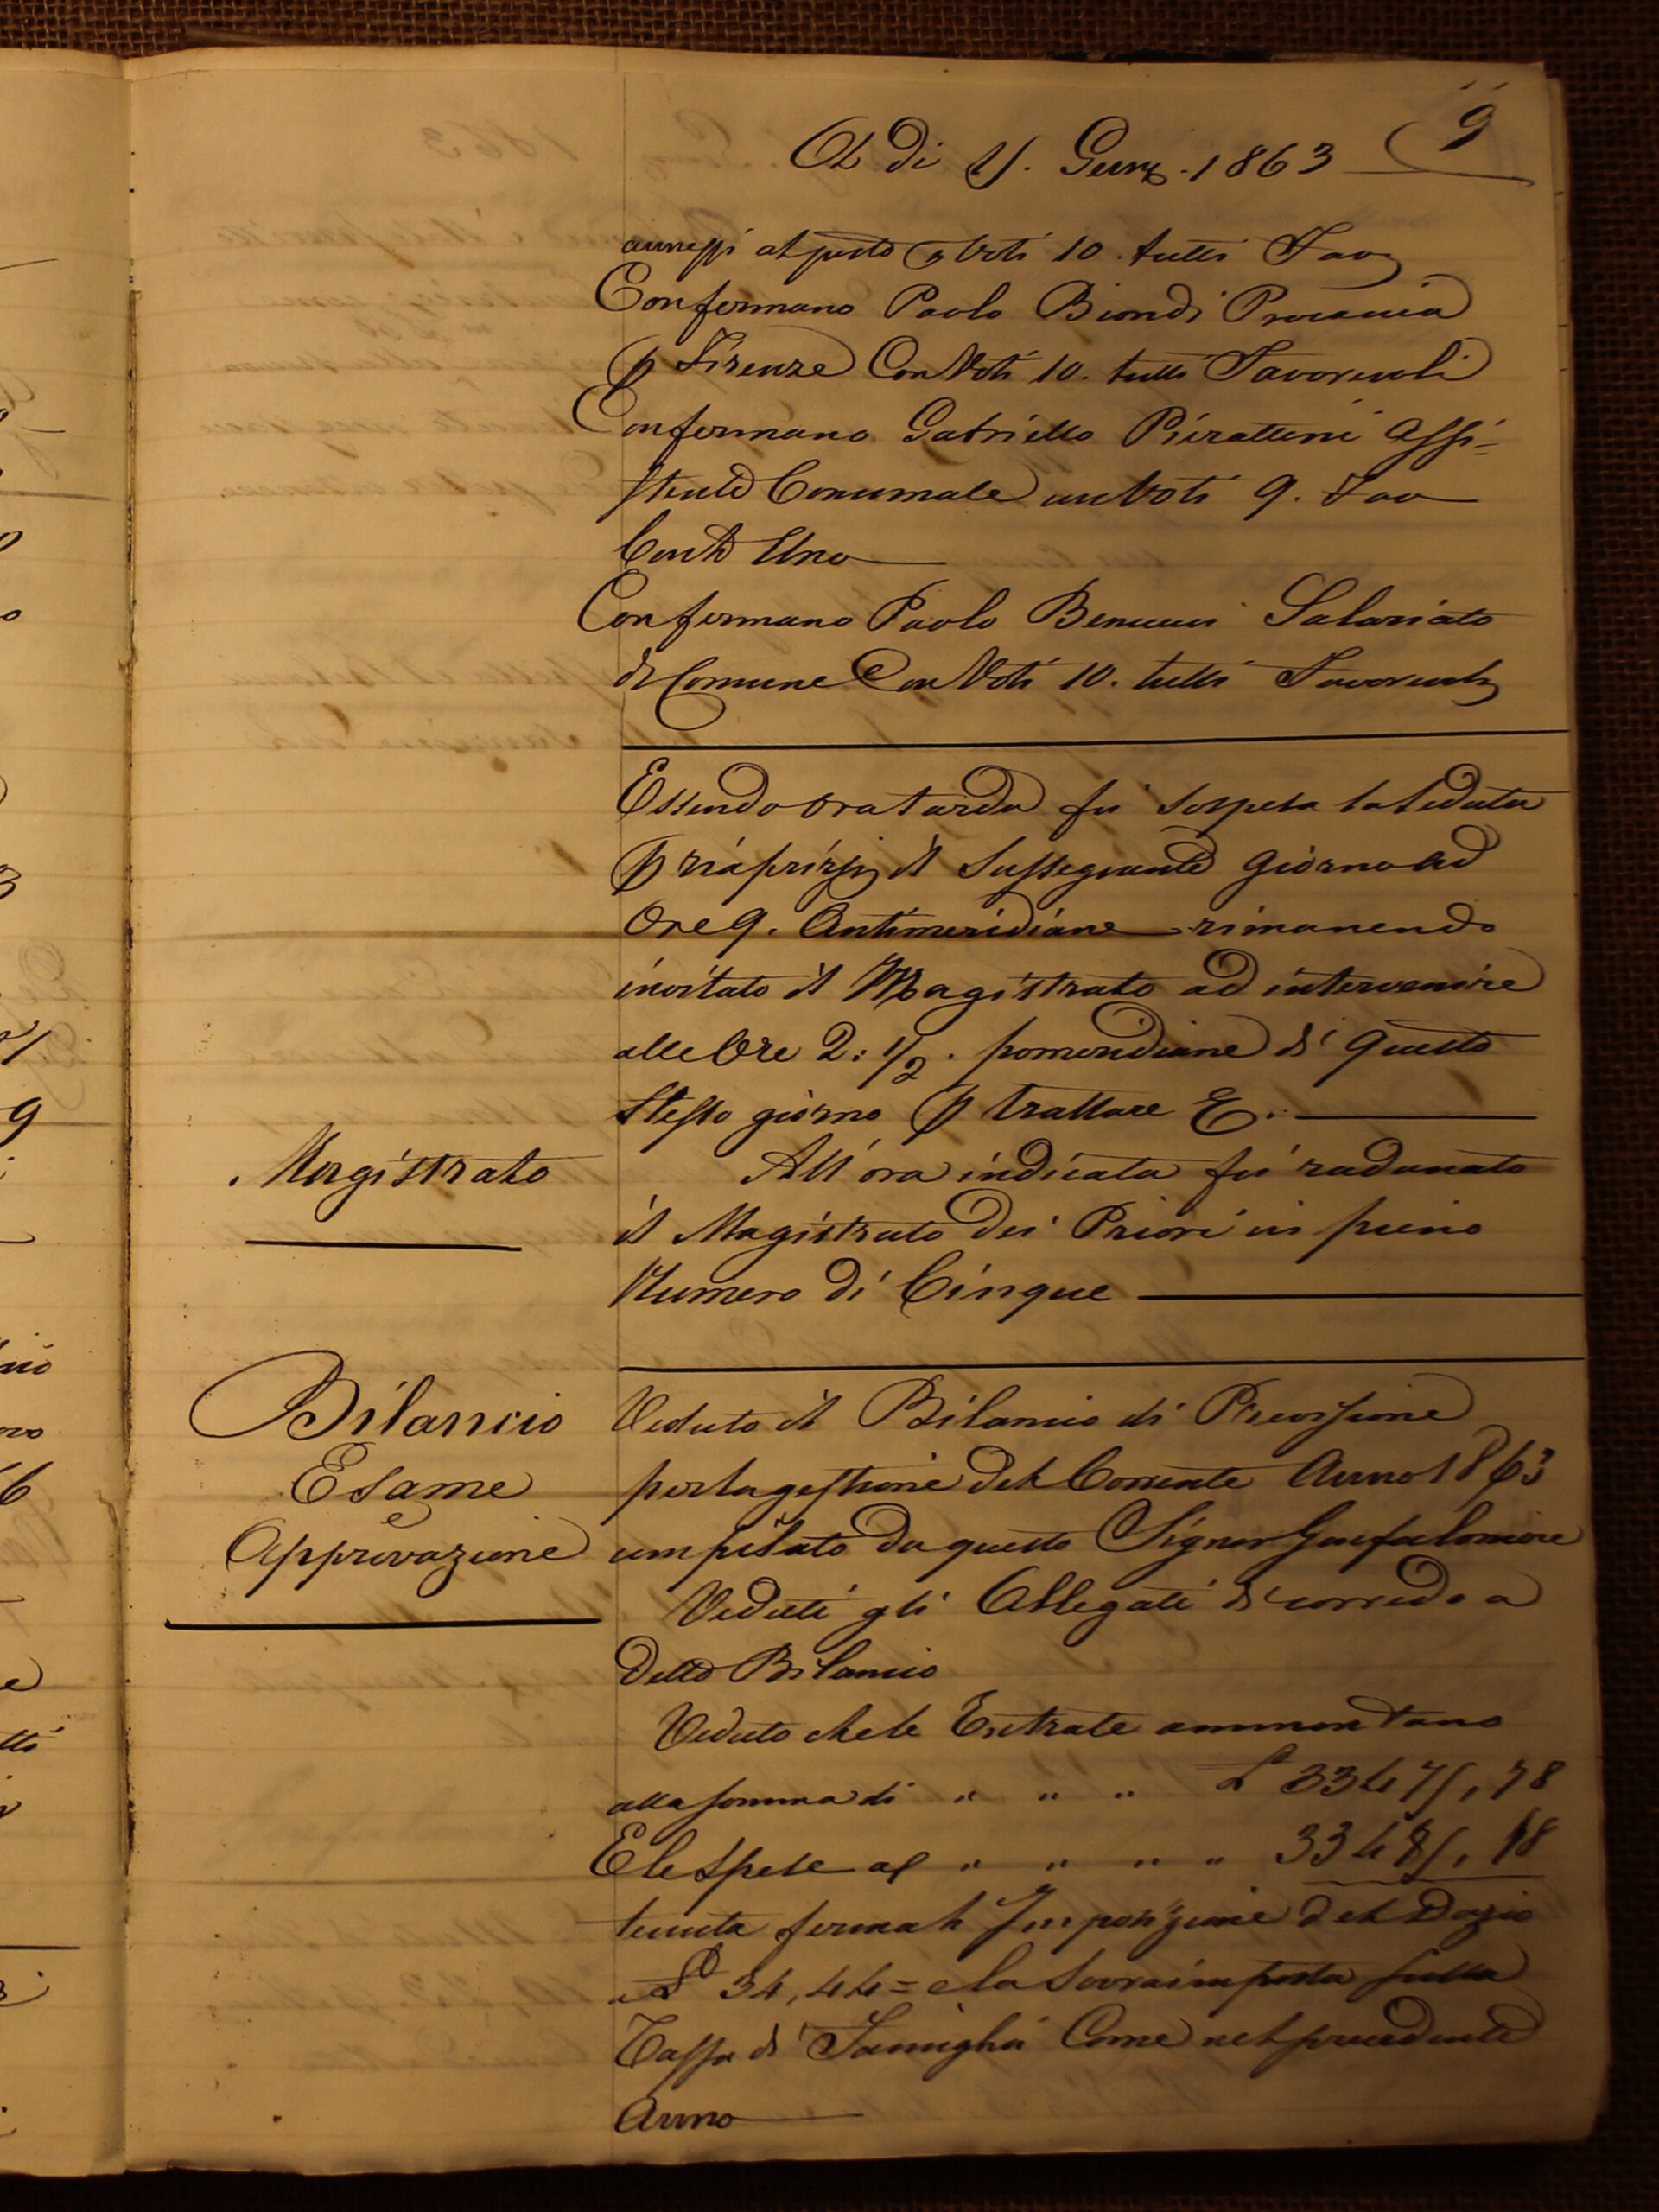 9
A dì 15. Genn. 1863
annessi al posto p Voti 10. tutti Fav
Confermano Paolo Biondi Procaccia
p Firenze Con Voti 10. tutti Favorevoli
Confermano Gabriello Pierattini Assi=
stente Comunale con Voti 9. Fav
Cont Uno
Confermano Paolo Benucci Salariato
di Comune Con Voti 10. tutti Favorevoli
Essendo ora tarda fu sospesa la seduta
p riaprirsi il Susseguente Giorno ad
Ore 9. Antimeridiane rimanendo
invitato il Magistrato ad intervenire
alle Ore 2: 1/2. pomeridiane di questo
stesso giorno p trattare E.
Magistrato
All'ora indicata fu radunato
il Magistrato dei Priori in pieno
Numero di Cinque
Bilancio
Esame
e
Approvazione
Veduto il Bilancio di Previsione
per la gestione del Corrente Anno 1863
compilato da questo Signor Gonfaloniere
Veduti gli Allegati di corredo a
detto Bilancio
Veduto che le Entrate ammontano
alla somma di " " " £ 33475,78
E le Spese a " " " " 33485,18
tenuta ferma l'Imposizione del Dazio
£ 34,44= e la Sovraimposta sulla
Tassa di Famiglia Come nel precedente
Anno